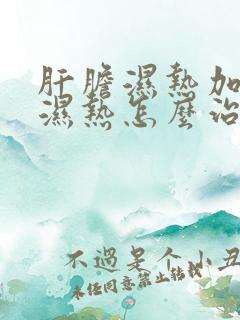 肝膽濕熱加
濕熱怎麼治
不過是個小丑
未任同意禁止转载